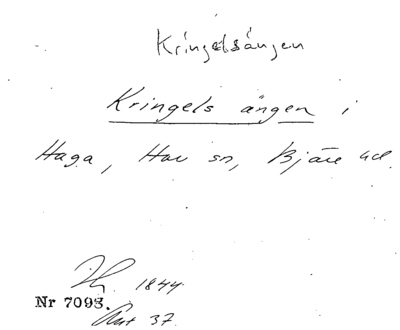 Kringelsängen
Kringels ängen i
Haga, Hov sn, Bjäre hd.
1844
Nr 7093.
Akt 37.